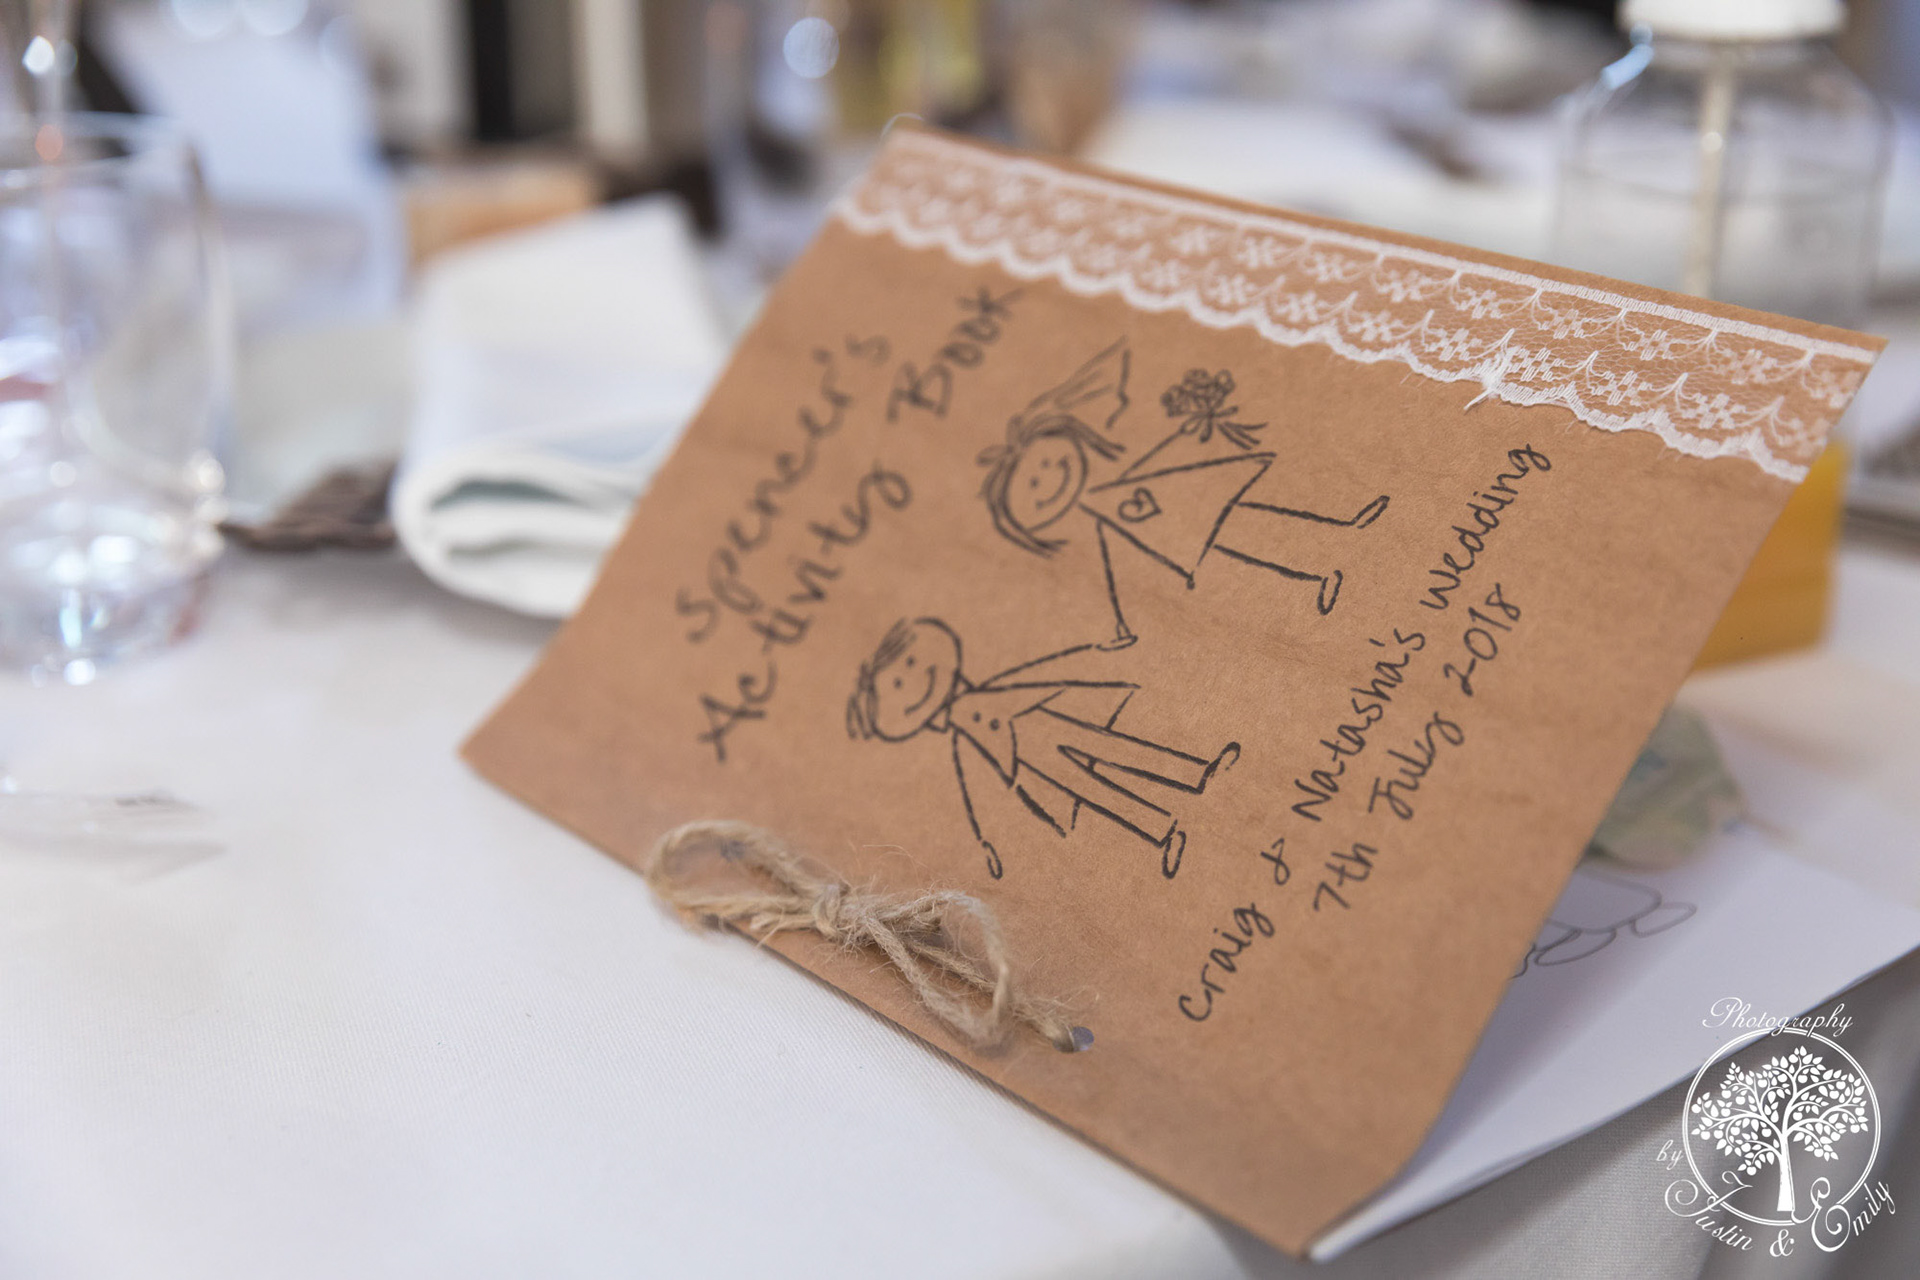 Spencer's
Activity Book
Craig & Natasha's Wedding
7th July 2018
Photography
by Justin & Emily